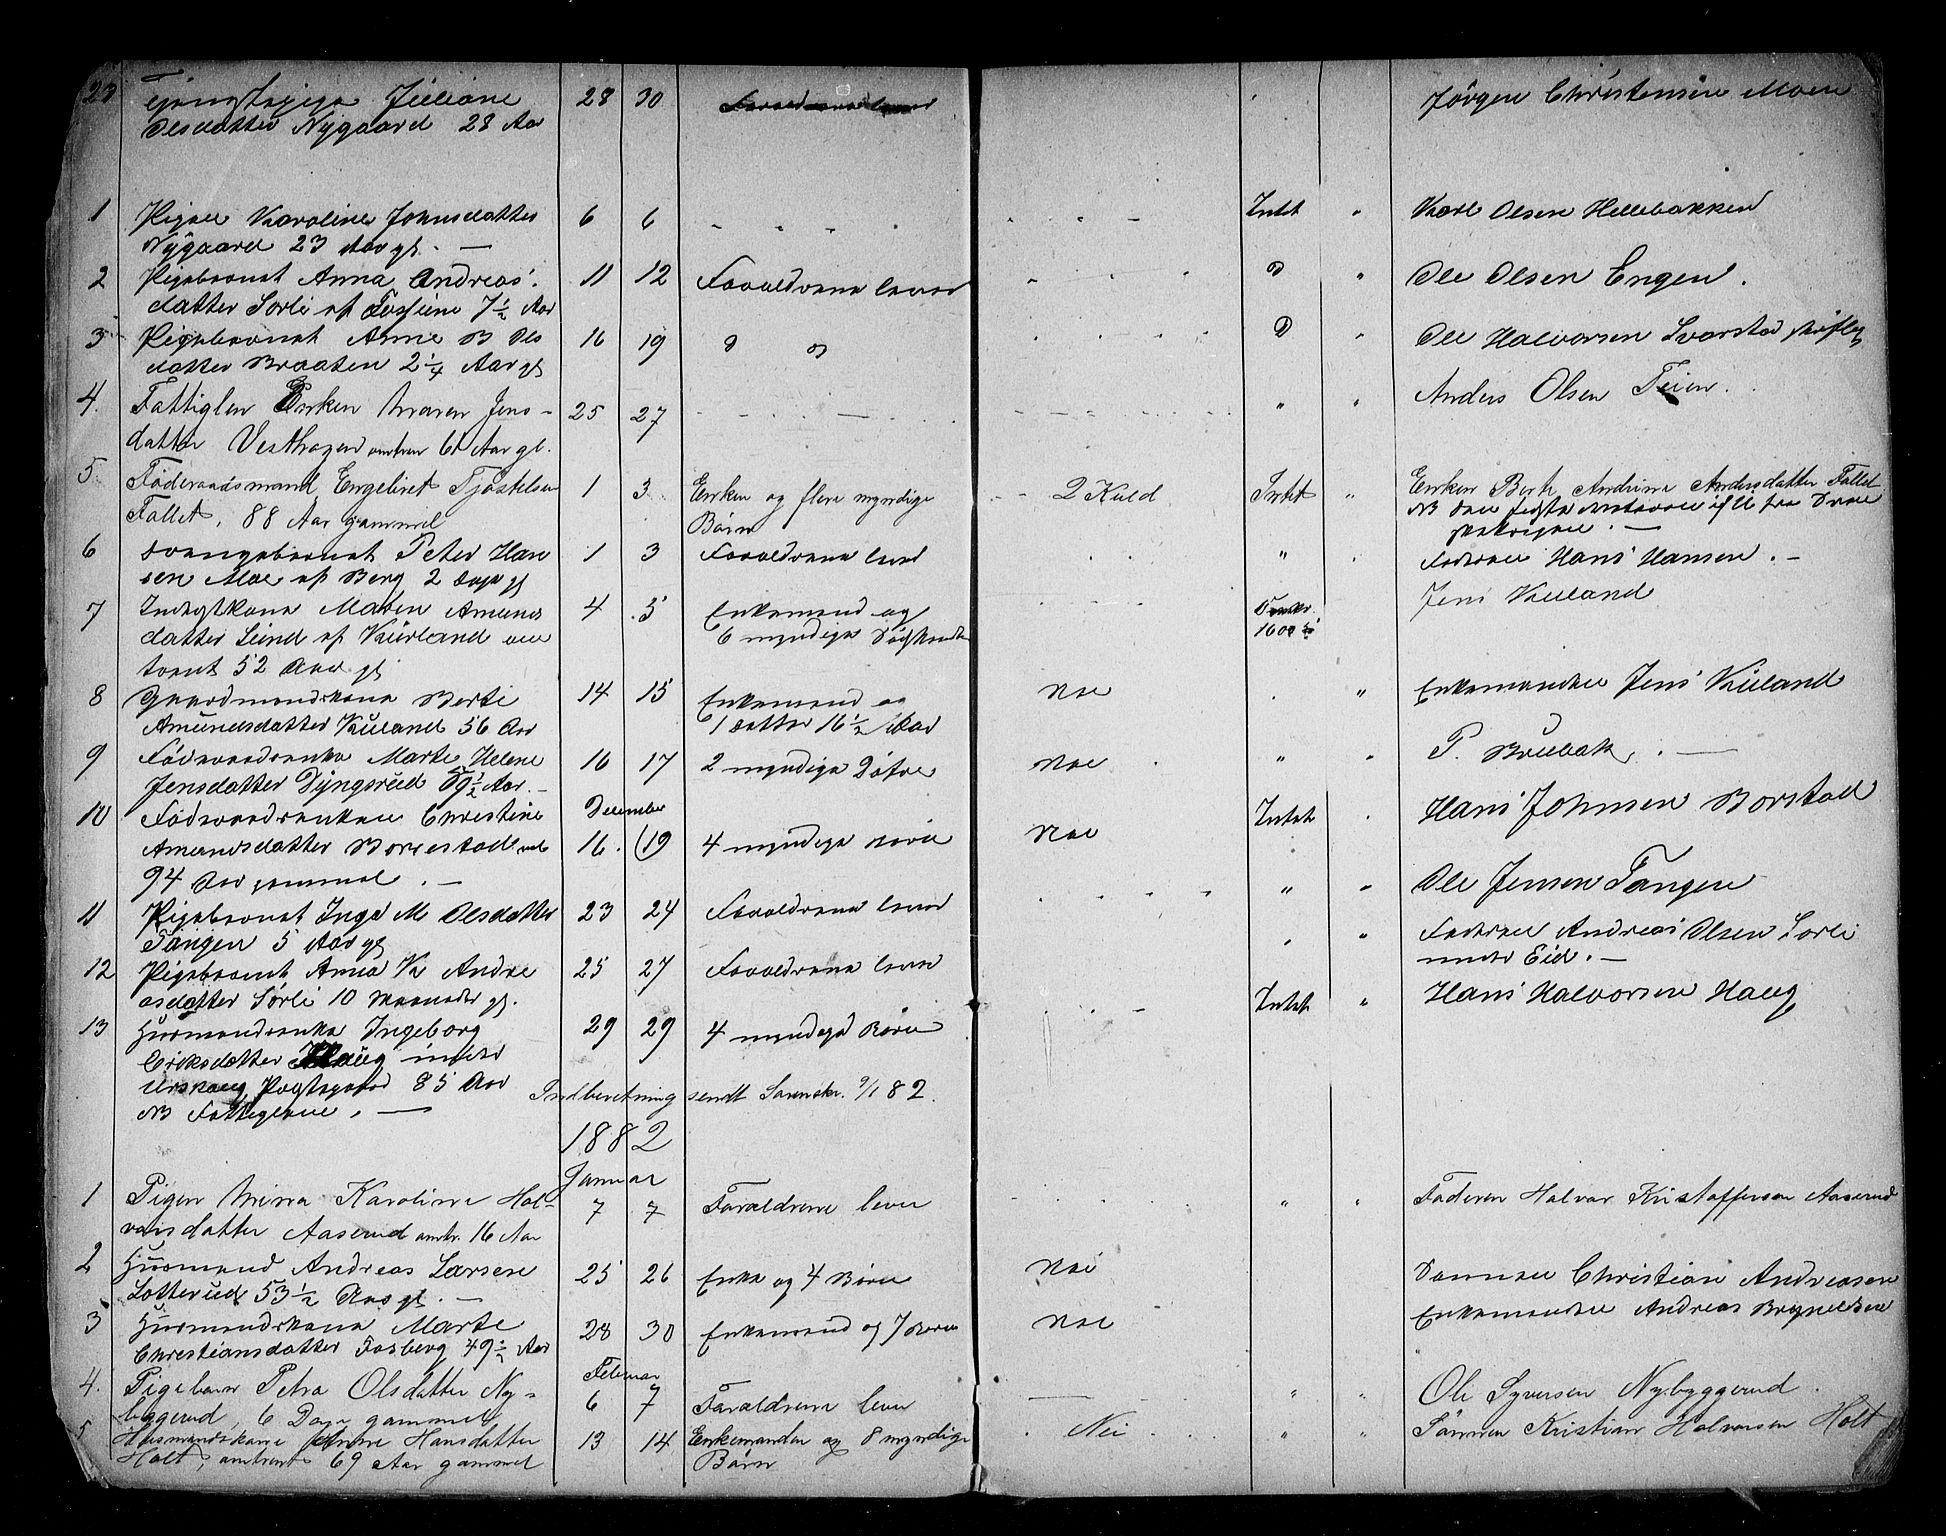 23 Tjenestepige Juliane 28 30 Forældrene lever Jørgen Christensen Moen
Olsdatter Nygaard 28 Aar
1 Pigen Karoline Johnsdatter 6 6 Intet " Karl Olsen Hellebakken
Nygaard 23 Aar gl. —
2 Pigebarnet Anna Andreas- 11 12 Forældrene lever D " Ole Olsen Engen.
datter Sorli af 7½ Aar
3 Pigebarnet Anne B Ols 16 19 D D " Ole Halvorsen Svarstad
datter Braaten 2¼ Aar gl
4. Fattiglem Enken Maren Jens- 25 27 " " Anders Olsen Teien.
datter Vesthagen omtren 61 Aar gl.
5 Føderaadsmand Engebret Tjøstelsen 1 3 Enken og flere myndige 2 Kuld Intet " Enken Berte Andrine Andersdatter Fallet
Fallet, 88 Aar gammel Børn NB den
6 Drengebarnet Peter Han 1 3 Forældrene lever " Faderen Hans Hansen. —
sen Moe af Berg 2 Dage gl
7 Maren Amunds 4 5 Enkemand og 1600 Jens Kuland
datter Lund af Kurland om 6 myndige
trent 52 Aar gl
8 Gaardmandskone Berte 14 15 Enkemand og Nei " Enkemanden Jens Kuland
Amundsdatter Kuland 56 Aar 1 datter 16½ Aar
9 Føderaadsenke Marte Helene 16 17 2 myndige Døtre Nei " " P. Brubak. —
Jensdatter Dyngsrud 59½ Aar. —
10 Føderaadsenken Christine December Intet Hans Johnsen Borstad
Amundsdatter Borrestad 16. 19 4 myndige Børn Nei
94 Aar gammel. —
11 Pigebarnet Inga M Olsdatter 23 24 Forældrene lever " " Ole Jensen Tangen
Tangen 5 Aar gl
12 Pigebarnet Anna K Andre 25 27 Forældrene lever " " Faderen Andreas Olsen Sorli
asdatter Sørli 10 Maaneder gl. under Eid. —
13 Husmandsenke Ingeborg 29 29 4 myndige Børn Intet " Hans Halvorsen Haug
Eriksdatter Haug under
Urskoug Præstegaard 85 Aar
NB Fattiglem. —
Indberetning sendt Sorenskr. 9/1 82.
1882
Januar
1 Pigen Mina Karoline Hal- 7 7 Forældrene lever " " Faderen Halvor Kristoffersen Aaserud
vorsdatter Aaserud omtr. 16 Aar
2 Husmand Andreas Larsen 25 26 Enke og 4 Børn Nei Sønnen Christian Andreasen
Lotterud 53½ Aar gl. —
3 Husmandskone Marte 28 30 Enkemand og 7 Børn Nei Enkemanden Andreas Brynildsen
Christiansdatter Fosberg 49½ Aar
Februar
4. Pigebarn Petra Olsdatter Ny- 6 7 Forældrene lever — " " Ole Syversen Nybyggerud.
byggerud, 6 Dage gammel
5 Husmandskone Anne Hansdatter 13 14 Enkemanden og 8 myndige Nei " " Sønnen Kristian Halvorsen Holt
Holt, omtrent 69 Aar gammel Børn